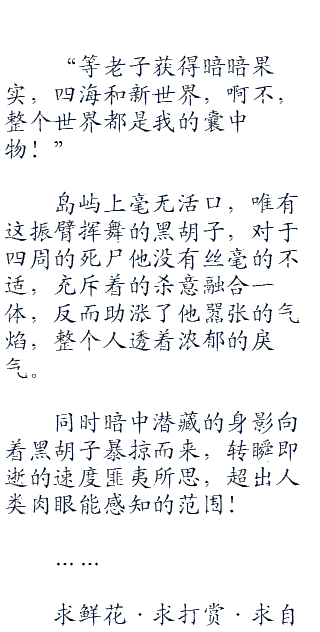 “等老子获得暗暗果
实，四海和新世界，啊不，
整个世界都是我的囊中
物！”
岛屿上毫无活口，唯有
这振臂挥舞的黑胡子，对于
四周的死尸他没有丝毫的不
适，充斥着的杀意融合一
体，反而助涨了他嚣张的气
焰，整个人透着浓郁的戾
气。
同时暗中潜藏的身影向
着黑胡子暴掠而来，转瞬即
逝的速度匪夷所思，超出人
类肉眼能感知的范围！
……
求鲜花·求打赏·求自